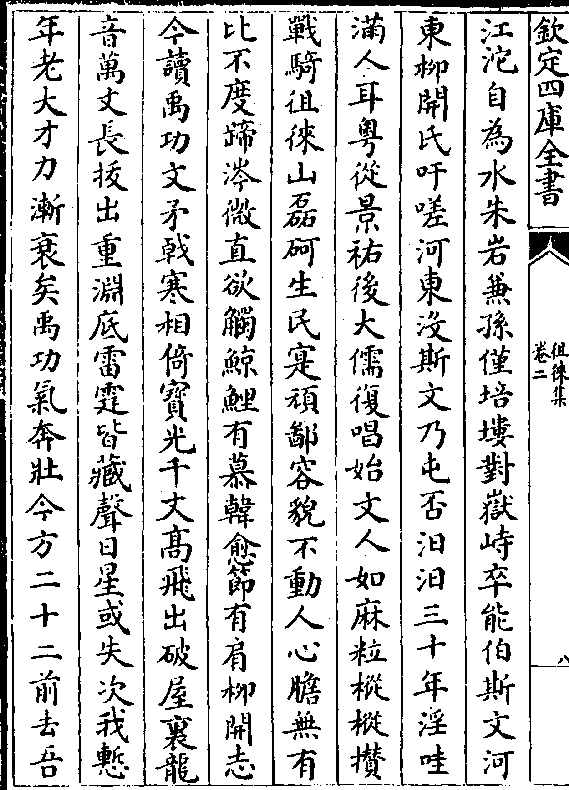 欽定四庫全書
徂徠集
卷二
八
江沱自為水朱岩兼孫僅培塿對嶽峙卒能伯斯文河
東柳開氏吁嗟河東沒斯文乃屯否汨汨三十年淫哇
滿人耳粵從景祐後大儒復唱始文人如麻粒樅樅攅
戰騎徂徠山磊砢生民寔頑鄙容貌不動人心膽無有
比不度蹄涔微直欲觸鯨鯉有慕韓愈節有肩柳開志
今讀禹功文矛戟寒相倚寶光千丈高飛出破屋裏龍
音萬丈長拔出重淵底雷霆皆藏聲日星或失次我慙
年老大才力漸衰矣禹功氣奔壯今方二十二前去吾